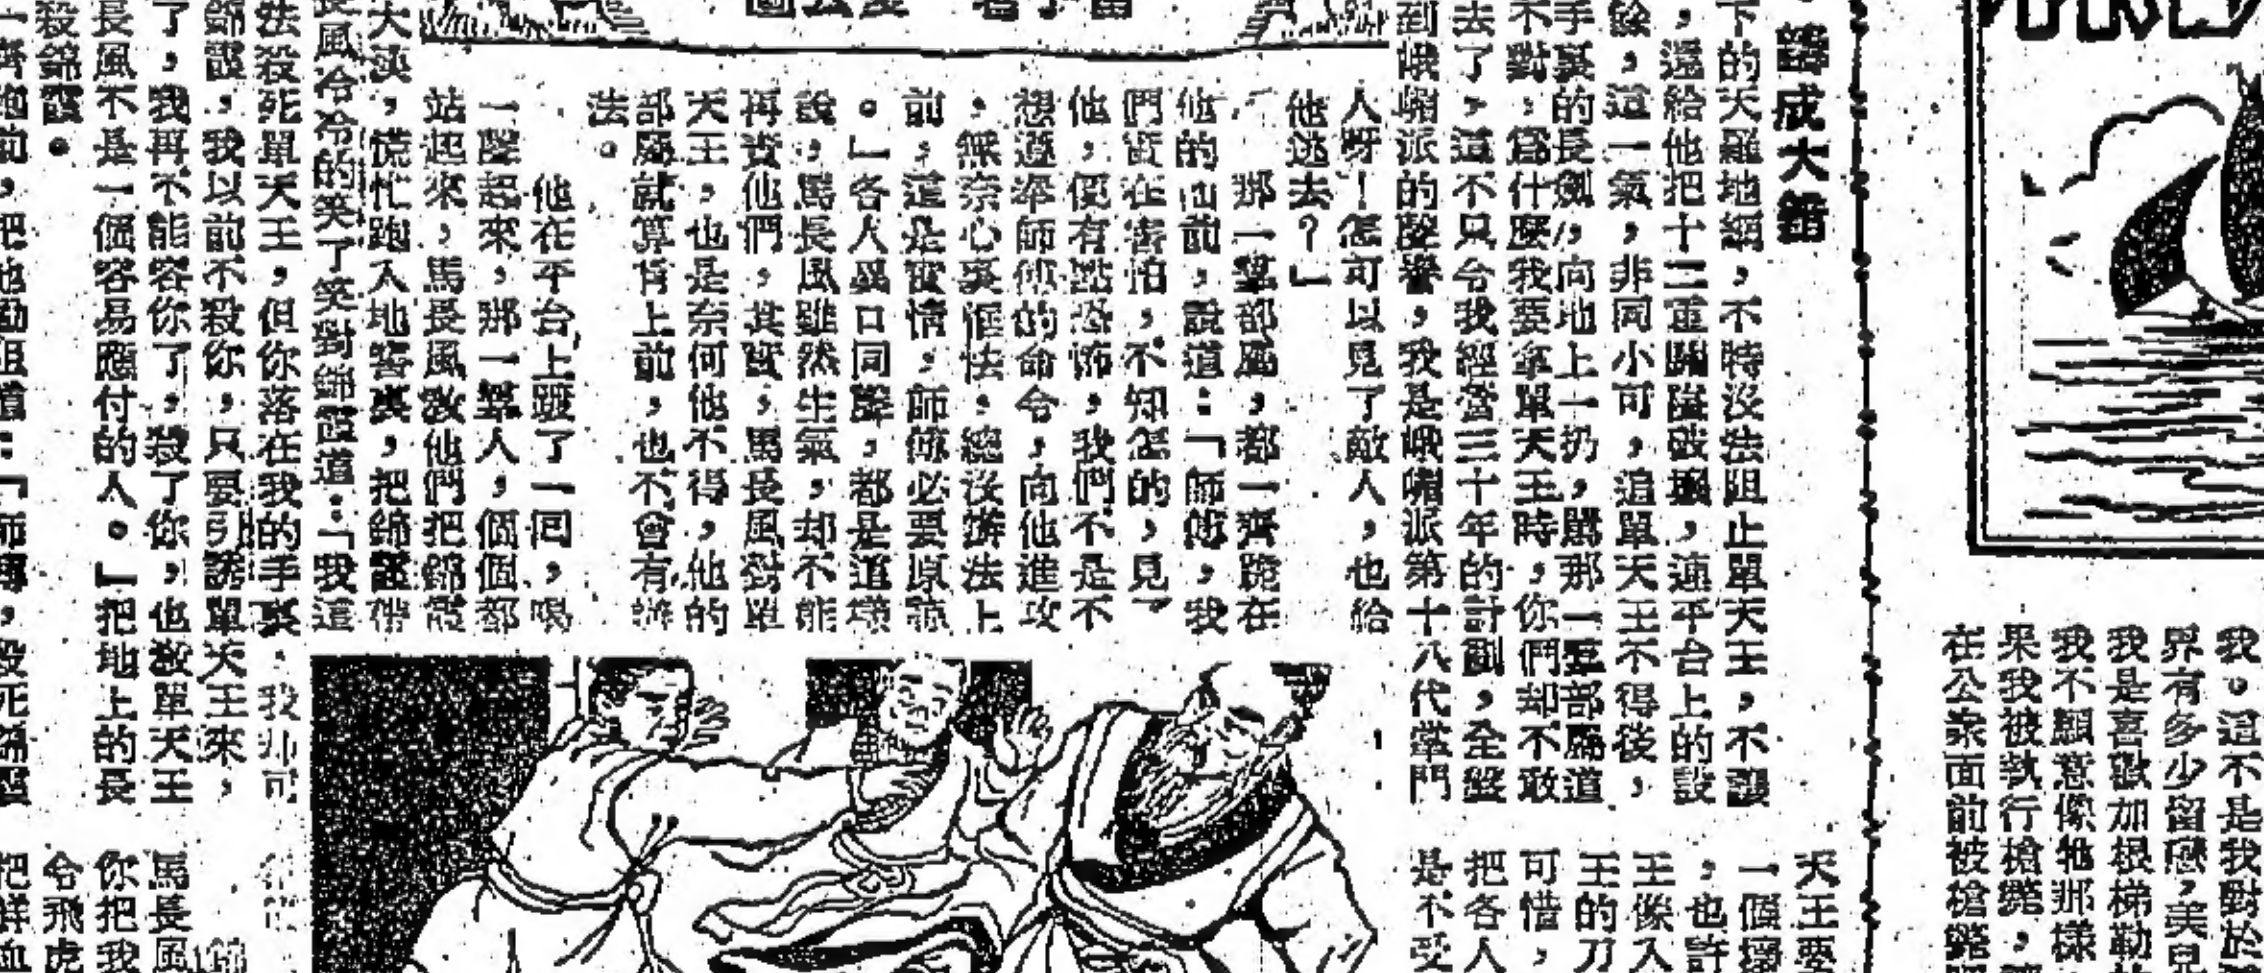 鑄成大錯
下的天羅地網，不時沒法阻止單天王，不讓
，還給他把十二重關隘破壞，連平台上的設
餘，這一氣，非同小可，追單天王不得後，
手裏的長劍，向地上一扔，罵那一羣部屬道
不對，爲什麼我要拿單天王時，你們却不敢
去了，這不只令我經營三十年的計劃，全盤
到峨嵋派的聲譽，我是峨嵋派第十八代掌門
人呀！怎可以見了敵人，也給
他逃去？」
那一羣部屬，都一齊跪在
他的面前，說道：「師傅，我
們實在害怕，不知怎的，見了
他，便有點恐怖，我們不是不
想遵奉師傅的命令，向他進攻
，無奈心裏恇怯，總沒辦法上
前，這是實情，師傅必要原諒
。」各人異口同聲，都是這樣
說，馬長風雖然生氣，却不能
再責他們，其實，馬長風對單
天王，也是奈何他不得，他的
部屬就算肯上前，也不會有辦
法。
他在平台上踱了一回，喝
一聲起來，那一羣人，個個都
站起來，馬長風教他們把錦霞
大決，慌忙跑入地窖裏，把錦霞帶
長風冷冷的笑了笑對錦霞道：「我這
法殺死單天王，但你落在我的手裏，我却可
錦霞，我以前不殺你，只要引誘單天王來，
了，我再不能容你了，殺了你，也教單天王
長風不是一個容易應付的人。」把地上的長
殺錦霞。
一齊跑前，把他勸阻道：「師傅，殺死錦霞
天王要
一個壞
，也許
王像入
王的刀
可惜，
把各人
是不受
馬長風
你把我
令飛虎
把鮮血
我。這不是我對於
界有多少留戀，美
我是喜歡加根梯勒
我不願意像牠那樣
果我被執行槍斃，
在公衆面前被槍斃